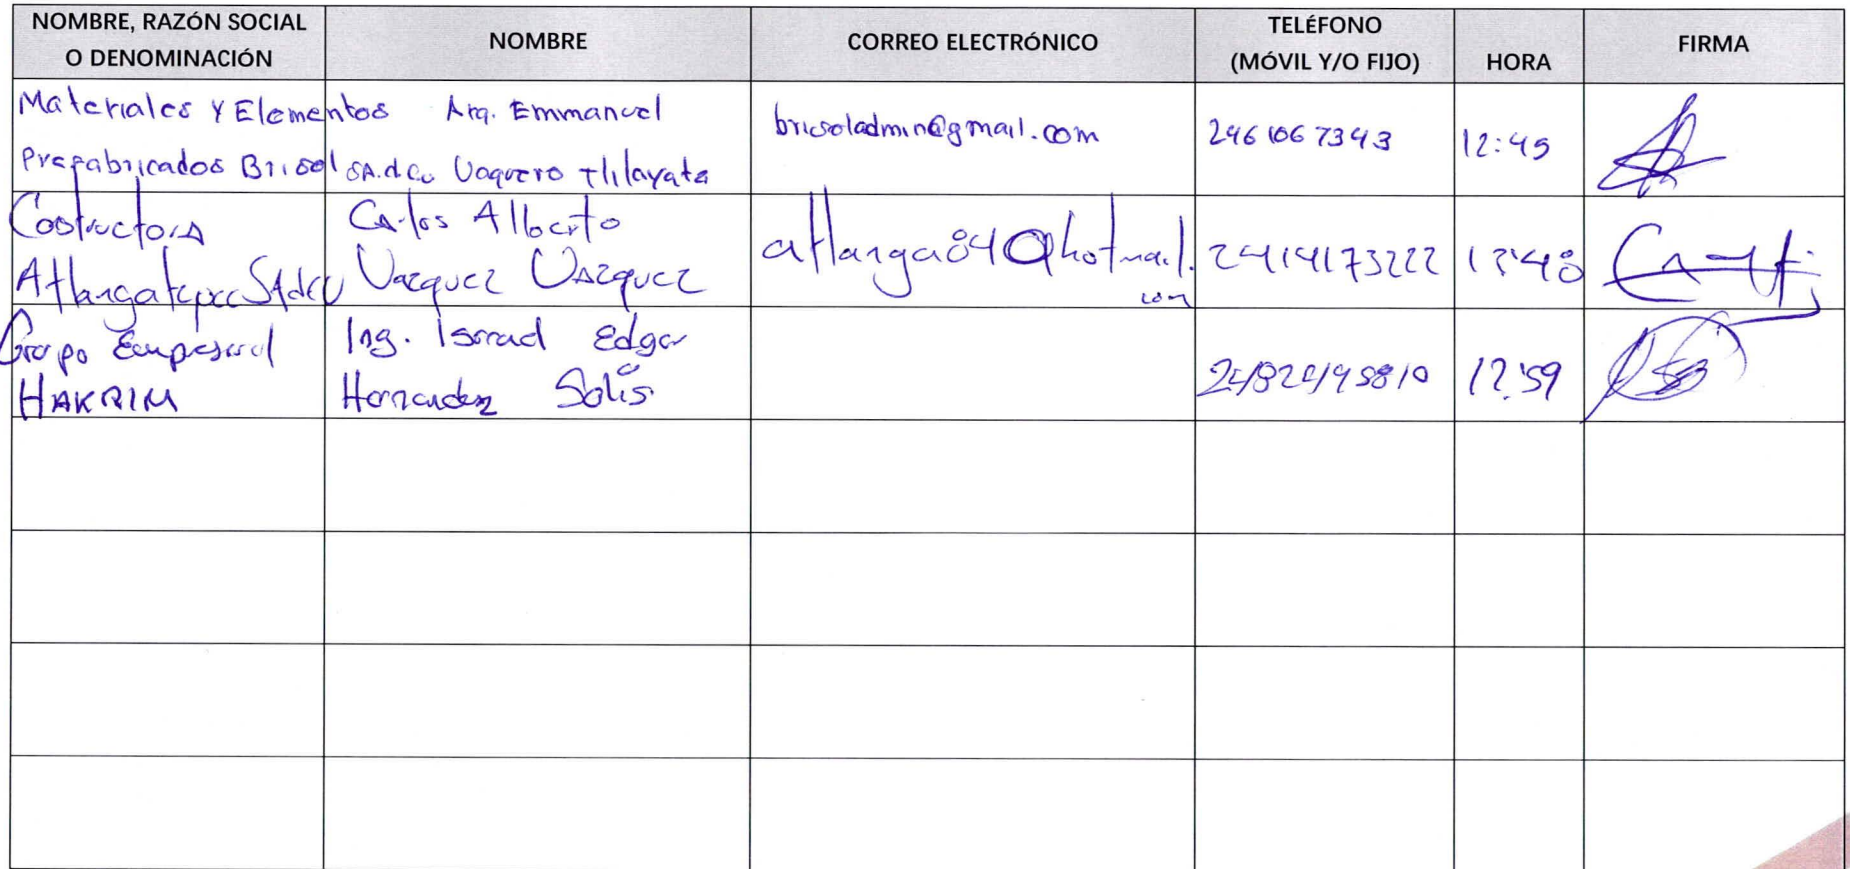 NOMBRE, RAZÓN SOCIAL
O DENOMINACIÓN
NOMBRE
CORREO ELECTRÓNICO
TELÉFONO
(MÓVIL Y/O FIJO)
HORA
FIRMA
Materiales Y Elementos Arq. Emmanuel
Prefabricados Brisol SA.d.cv Vaquero Tlilayatz
bricsoladmin@gmail.com
246 106 7343
12:45
Costructora
Atlangatepec SAdeCV
Carlos Alberto
Vazquez Vazquez
atlanga84@hotmail.
com
2414173222
12:48
Grupo Empresarial
HAKRIM
Ing. Israel Edgar
Hernandez Solís
12:59